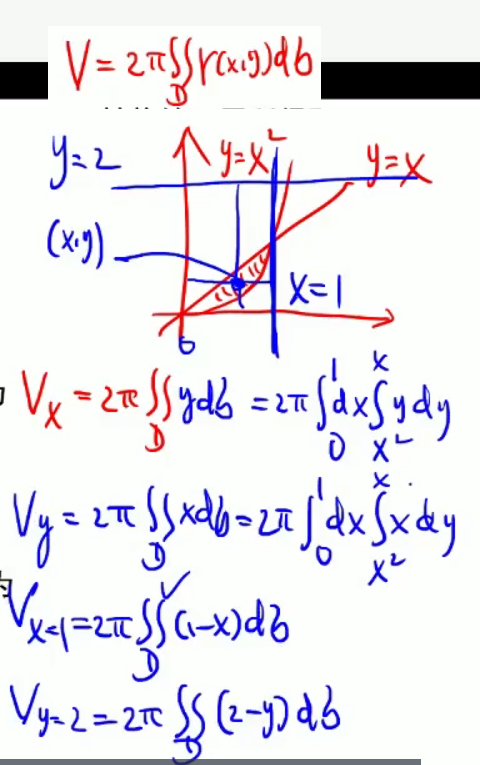 V = 2π∬_D r(x,y)dσ
y=2
y=x²
y=x
(x,y)
x=1
0
V_x = 2π∬_D ydσ = 2π∫_0^1 dx∫_{x²}^x ydy
V_y = 2π∬_D xdσ = 2π∫_0^1 dx∫_{x²}^x xdy
V_{x=1} = 2π∬_D (1-x)dσ
V_{y=2} = 2π∬_D (2-y)dσ